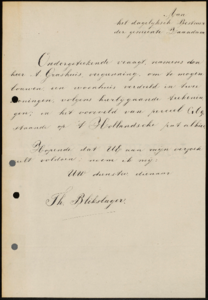 Aan
het dagelijksch Bestuur
der gemeente Zaandam
Ondergeteekende vraagt, namens den
heer A. vergunning, om te mogen
bouwen een woonhuis verdeeld in twee
woningen, volgens hierbijgaande teekenin-
gen, in het perceel
staande op 't Hollandsche pad
Hopende dat UE aan mijn verzoek
zult voldoen, noem ik mij
UE dienstw. dienaar
Th. Blekslager.